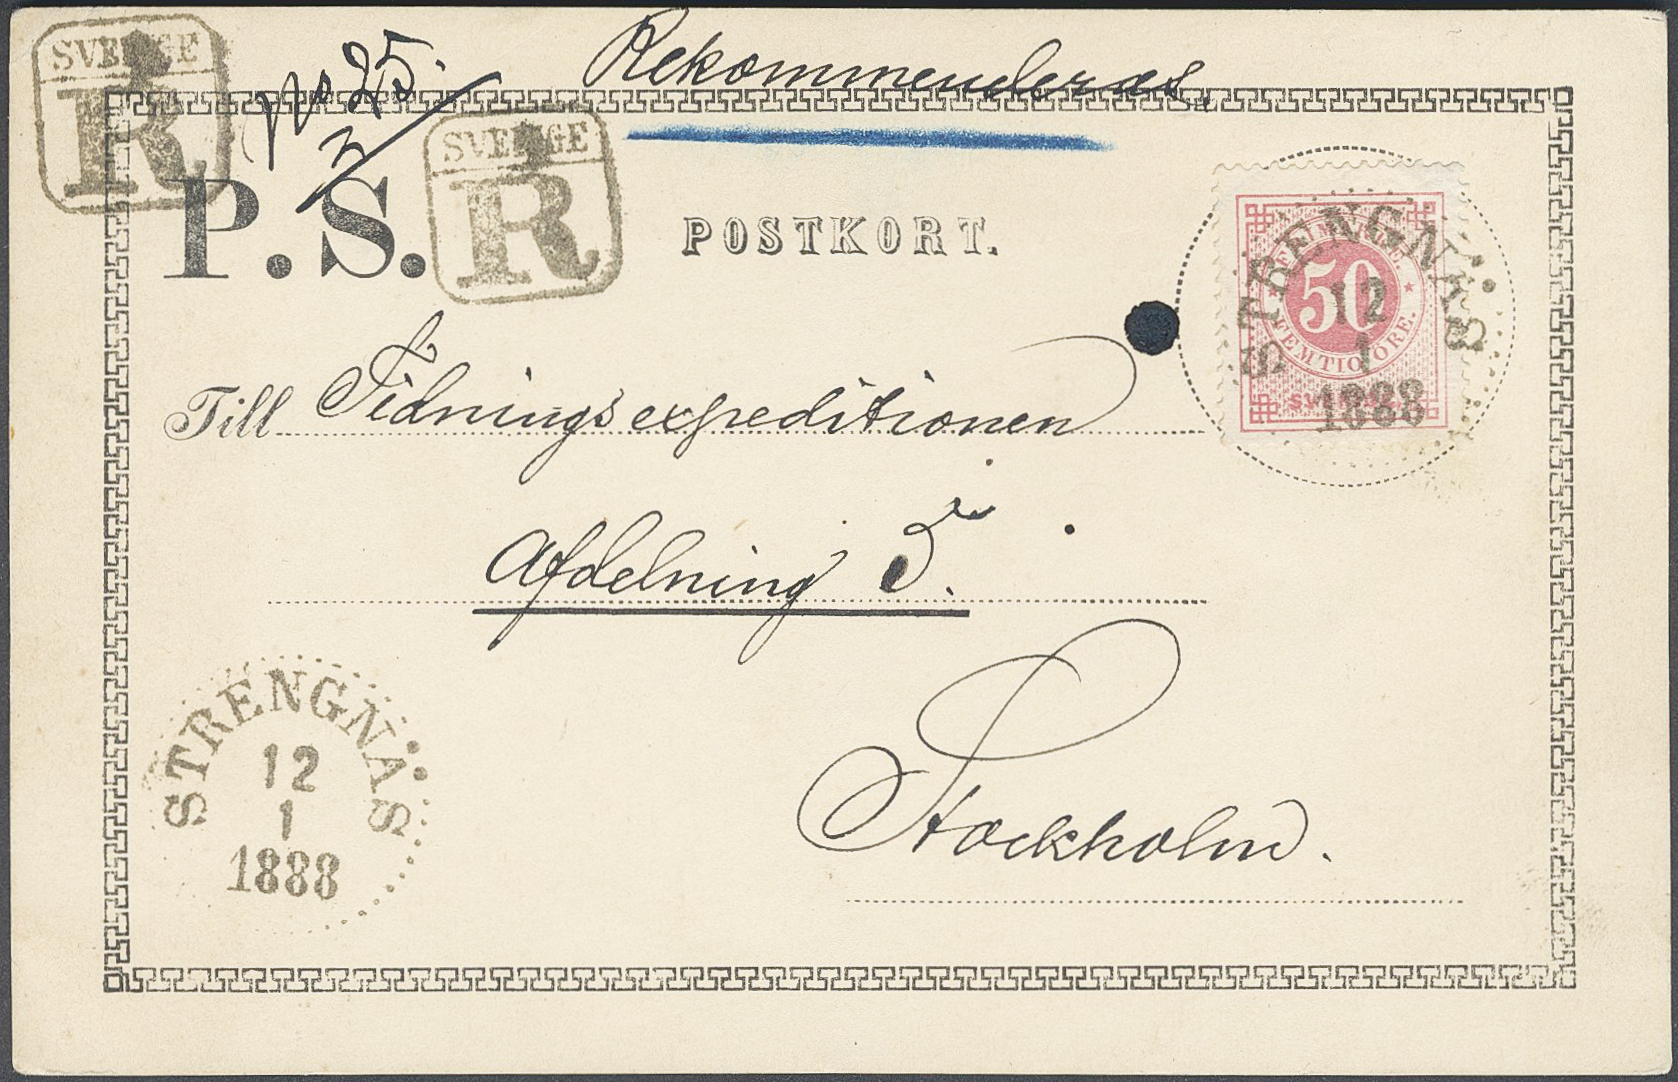 SVERIGE
R
No 25.
3
Rekommenderas.
SVERIGE
R
P.S.
POSTKORT.
FEMTIO ÖRE.
50
FEMTIO ÖRE.
SVERIGE
STRENGNÄS
12
1
1888
Till Tidningsexpeditionen
Afdelning 5.
Stockholm.
STRENGNÄS
12
1
1888